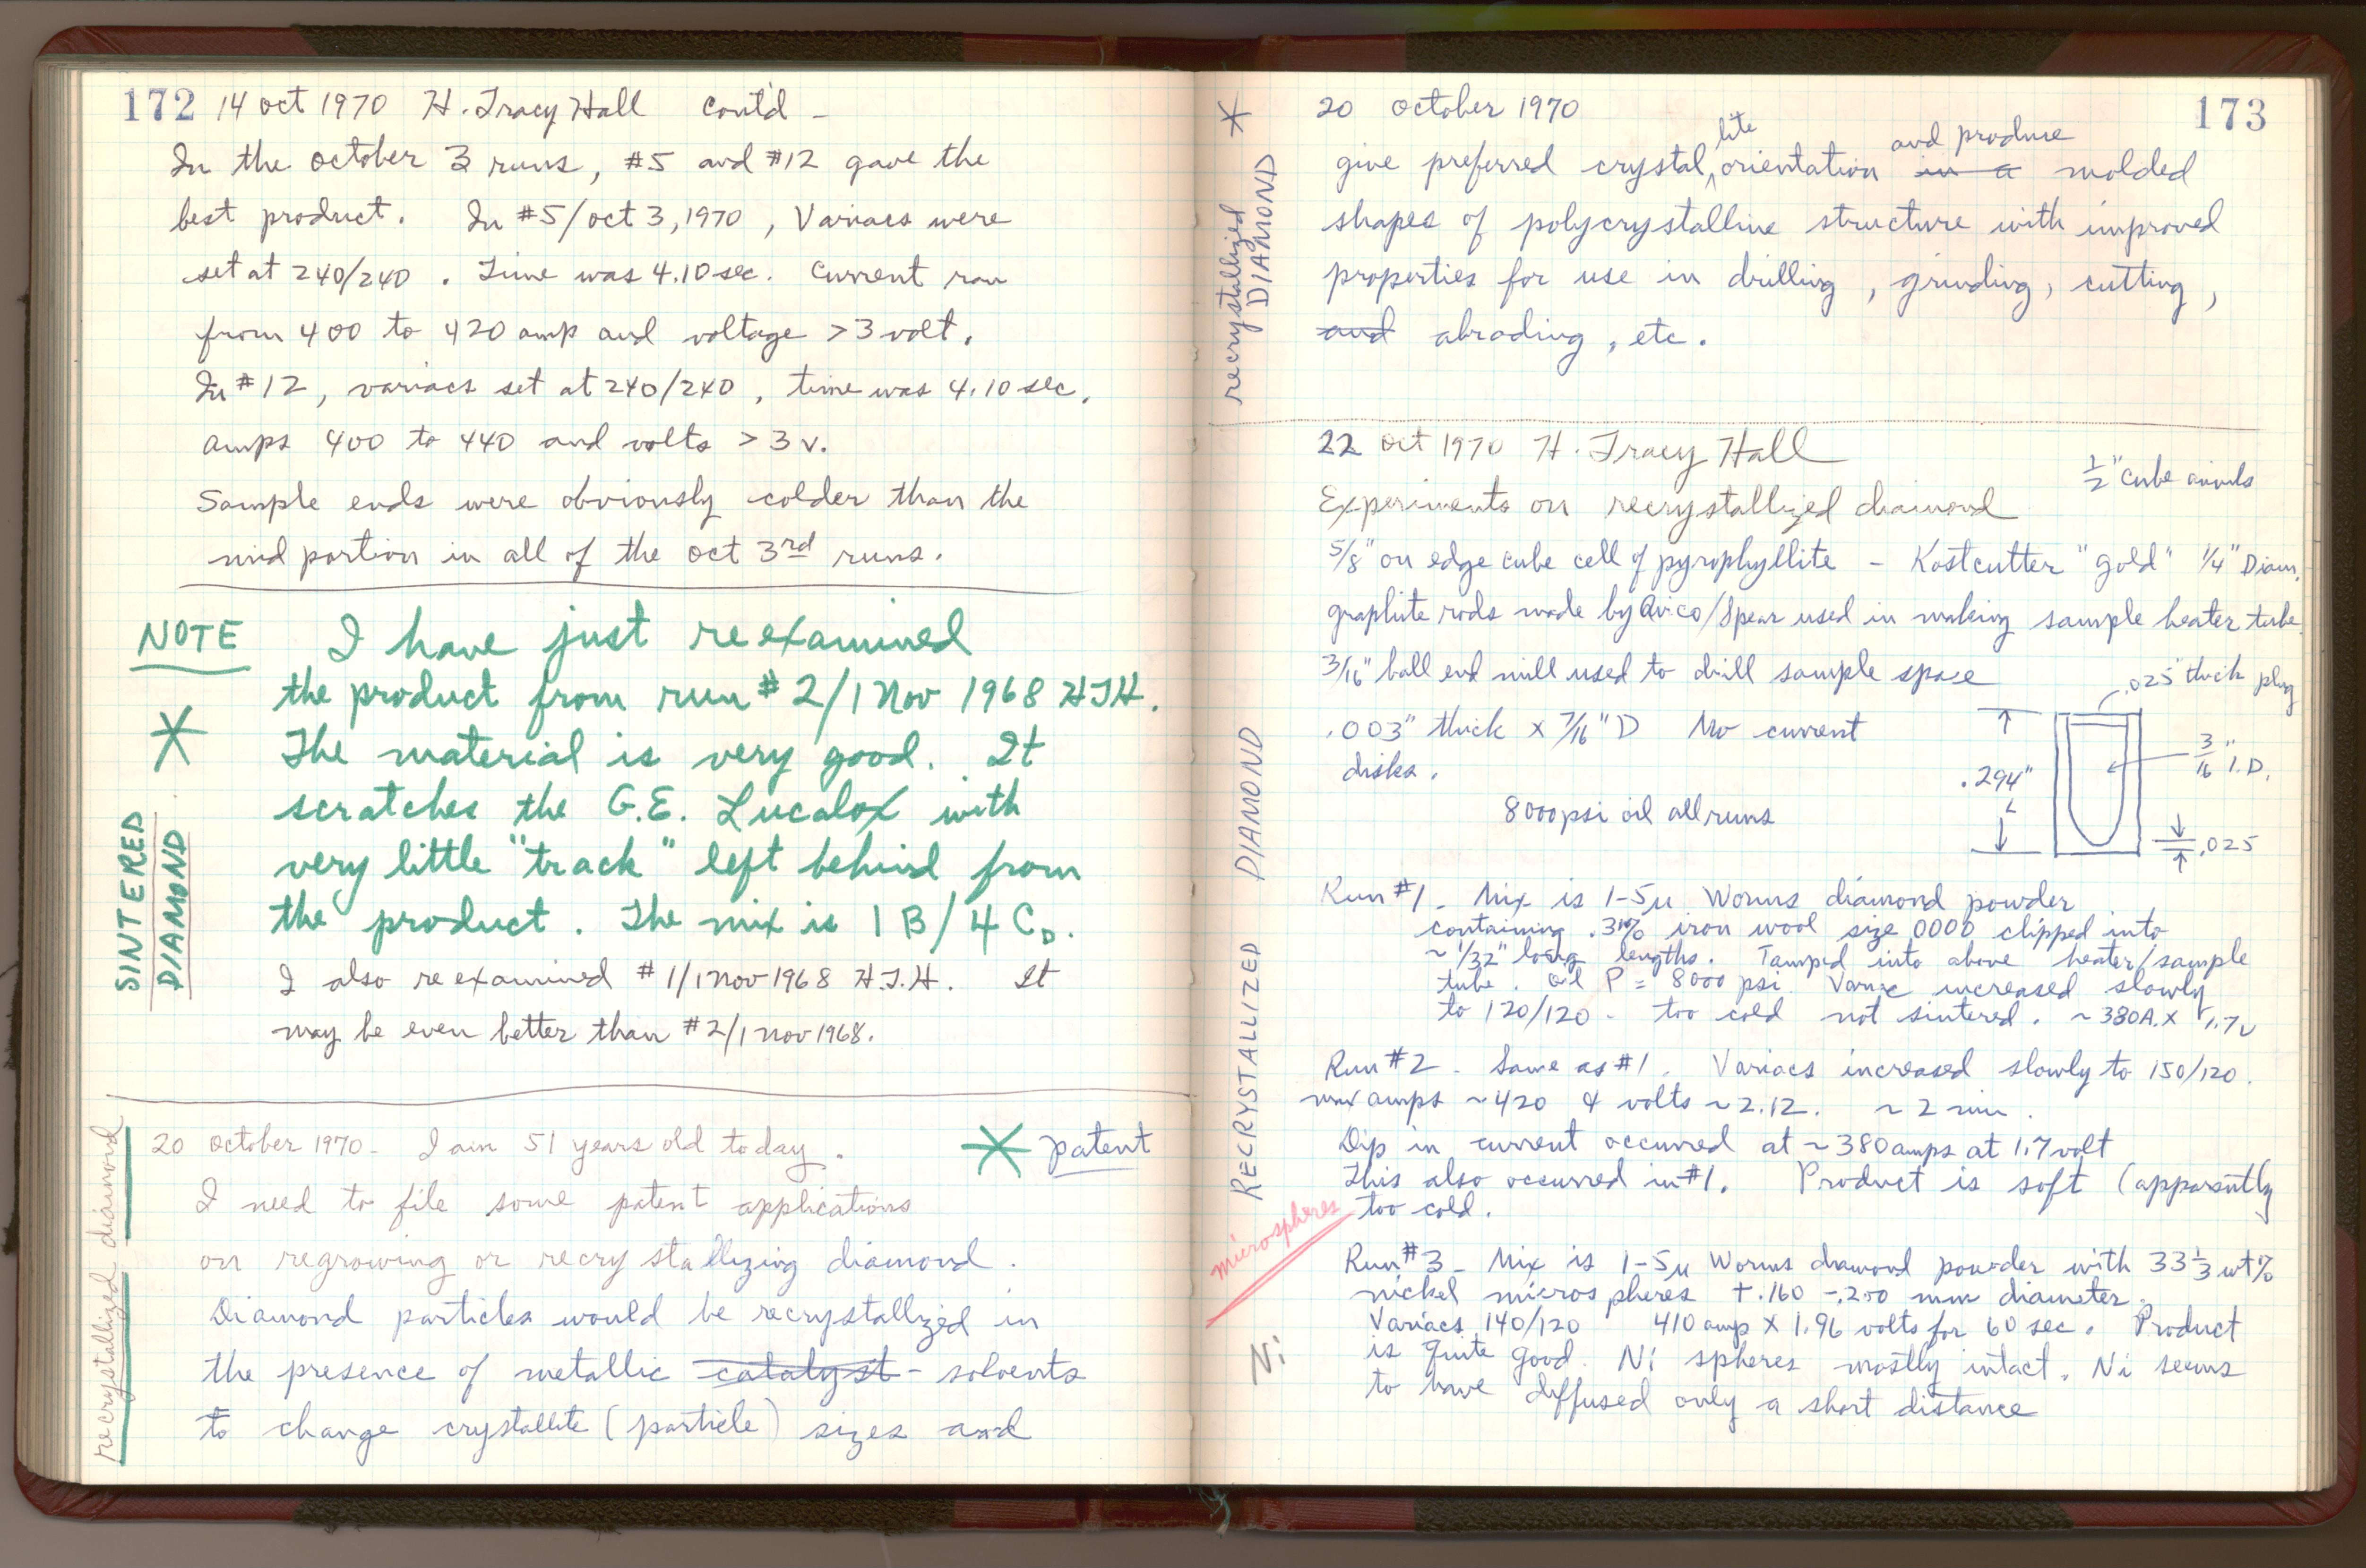 172 14 oct 1970 H. Tracy Hall cont'd -
In the october 3 runs, #5 and #12 gave the
best product. In #5/oct 3, 1970, Variacs were
set at 240/240. Time was 4.10 sec. Current ran
from 400 to 420 amp and voltage >3 volt.
In #12, variacs set at 240/240, time was 4.10 sec,
amps 400 to 440 and volts > 3 v.
Sample ends were obviously colder than the
mid portion in all of the oct 3rd runs.
NOTE I have just reexamined
the product from run # 2/1 Nov 1968 HTH.
The material is very good. It
scratches the G.E. Lucalox with
very little "track" left behind from
the product. The mix is 1 B/4 CD.
I also reexamined # 1/1 nov 1968 H.T.H. It
may be even better than #2/1 nov 1968.
*
SINTERED
DIAMOND
20 october 1970 - I am 51 years old today. * patent
I need to file some patent applications
on regrowing or recrystallizing diamond.
Diamond particles would be recrystallized in
the presence of metallic catalyst - solvents
to change crystallite (particle) sizes and
recrystallized diamond
* 20 october 1970 173
give preferred crystal lite orientation in a and produce molded
shapes of polycrystalline structure with improved
properties for use in drilling, grinding, cutting,
and abrading, etc.
recrystallized
DIAMOND
22 oct 1970 H. Tracy Hall
1/2" cube anvils
Experiments on recrystallized diamond
5/8" on edge cube cell of pyrophyllite - Kostcutter "gold" 1/4" Diam.
graphite rods made by Airco/Spear used in making sample heater tube.
3/16" ball end mill used to drill sample space
.025" thick plug
.003" thick x 7/16" D Mo current
disks.
.294"
3/16" I.D.
.025
8000 psi oil all runs
RECRYSTALLIZED DIAMOND
Run #1 - Mix is 1-5μ Worms diamond powder
containing iron wool size 0000 clipped into
~ 1/32" long lengths. Tamped into above heater/sample
tube. Oil P = 8000 psi. Variac increased slowly
to 120/120 - too cold not sintered. ~ 380A. x 1.7v
Run #2 - Same as #1. Variacs increased slowly to 150/120.
max amps ~420 & volts ~2.12. ~ 2 min.
Dip in current occurred at ~380 amps at 1.7 volt
This also occurred in #1. Product is soft (apparently
too cold.
microspheres
Run #3 - Mix is 1-5μ Worms diamond powder with 33 1/3 wt%
nickel microspheres +.160 -.200 mm diameter.
Variacs 140/120 410 amp x 1.96 volts for 60 sec. Product
is quite good. Ni spheres mostly intact. Ni seems
to have diffused only a short distance
Ni